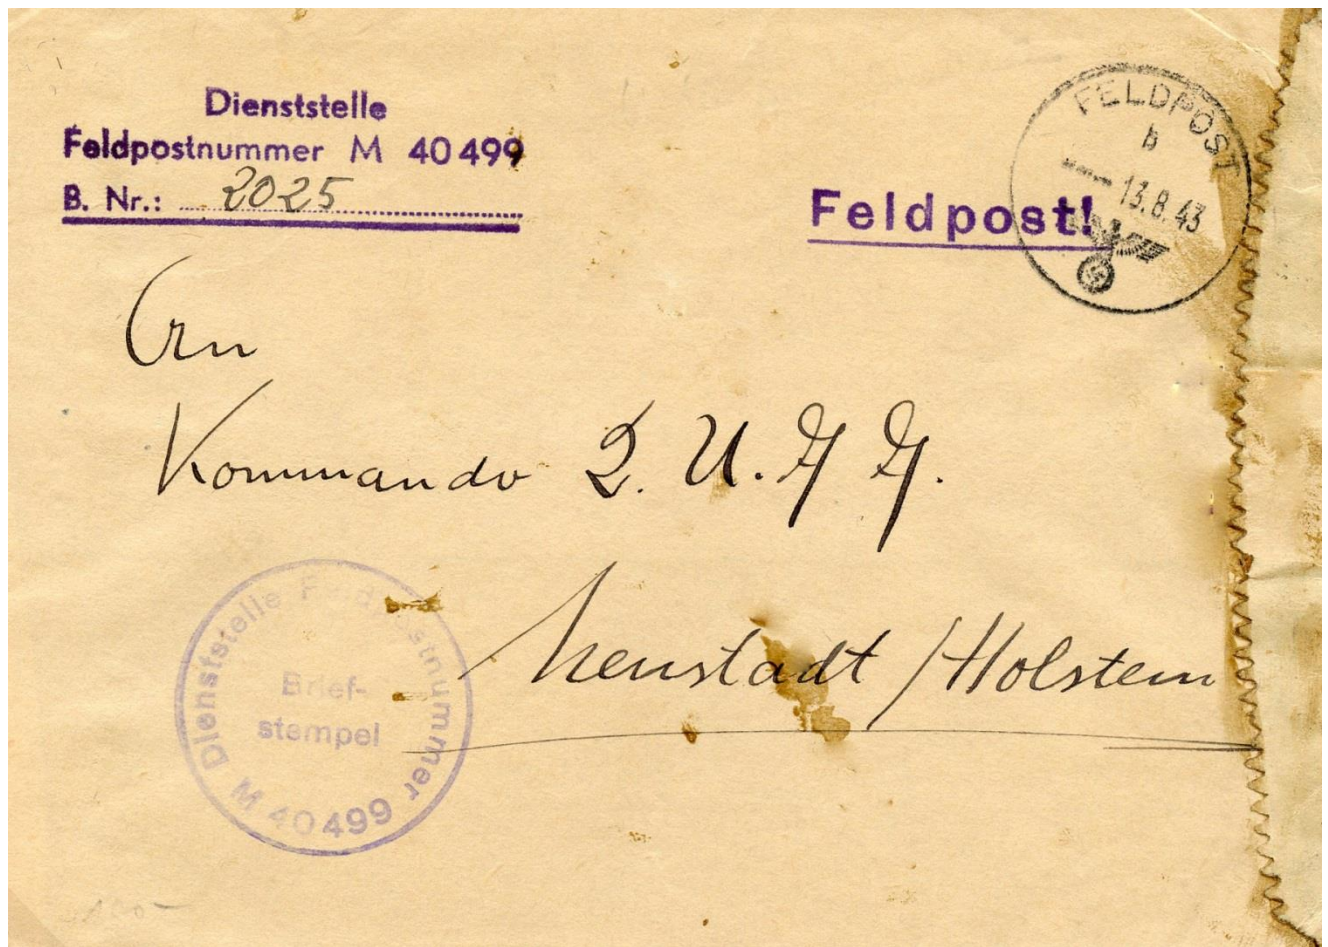 Dienststelle
Feldpostnummer M 40 499
B. Nr.: 2025
Feldpost!
FELDPOST
b
13.8.43
An
Kommando 2. U.
Neustadt / Holstein
Dienststelle Feldpostnummer
Brief-
stempel
M 40499